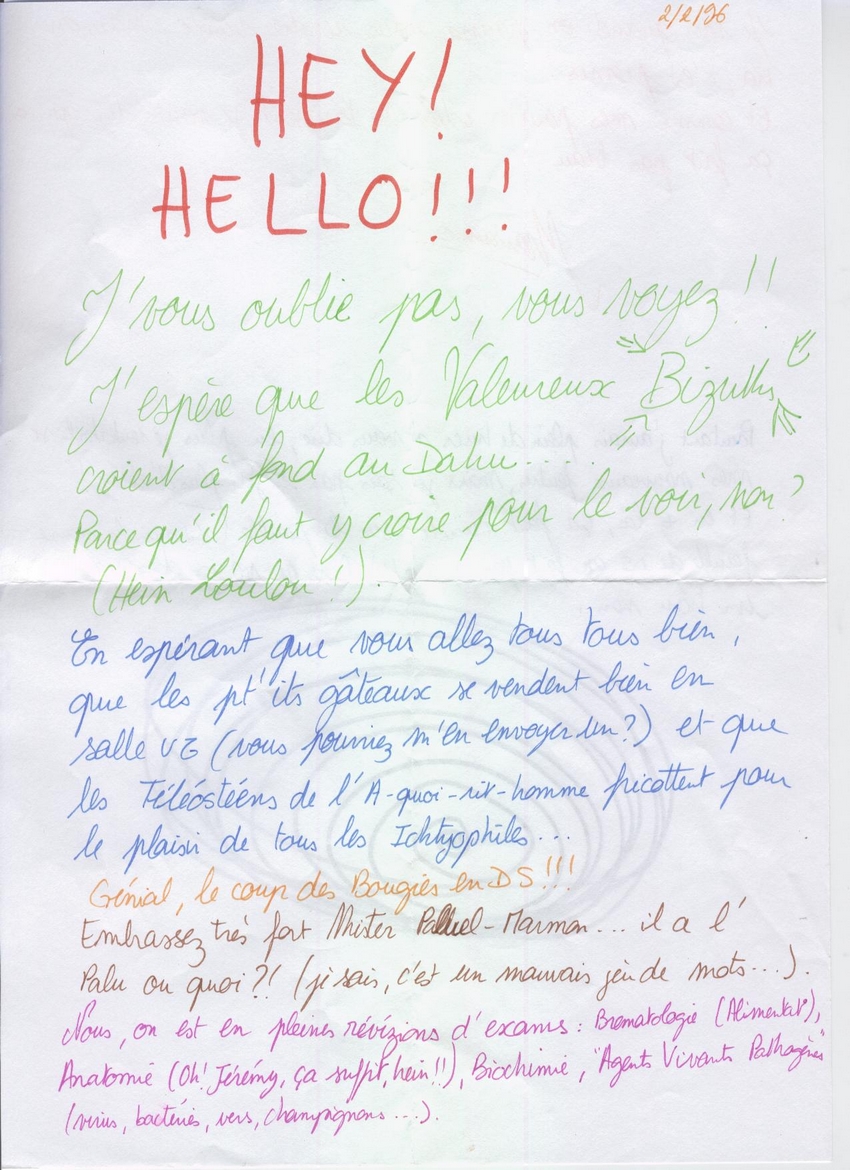 2/2/96
HEY!
HELLO!!!
J'vous oublie pas, vous voyez!!
J'espère que les Valeureux Bizuths
croient à fond au Dahu....
Parce qu'il faut y croire pour le voir, non?
(Hein Loulou!).
En espérant que vous allez tous tous bien,
que les pt'its gâteaux se vendent bien en
salle (vous pourriez m'en envoyer un?) et que
les Téléostéens de l'A-quoi-rit-homme fricottent pour
le plaisir de tous les Ichtyophiles...
Génial, le coup des Bougies en DS!!!
Embrassez très fort Mister Palluel-Marmon... il a l'
Palu ou quoi?! (j'sais, c'est un mauvais jeu de mots...).
Nous, on est en pleines révizions d'exams: Bromatologie (Alimentat°),
Anatomie (Oh! Jérémy, ça suffit, hein!!), Biochimie, "Agents Vivants Pathogènes"
(virus, bactéries, vers, champignons...).